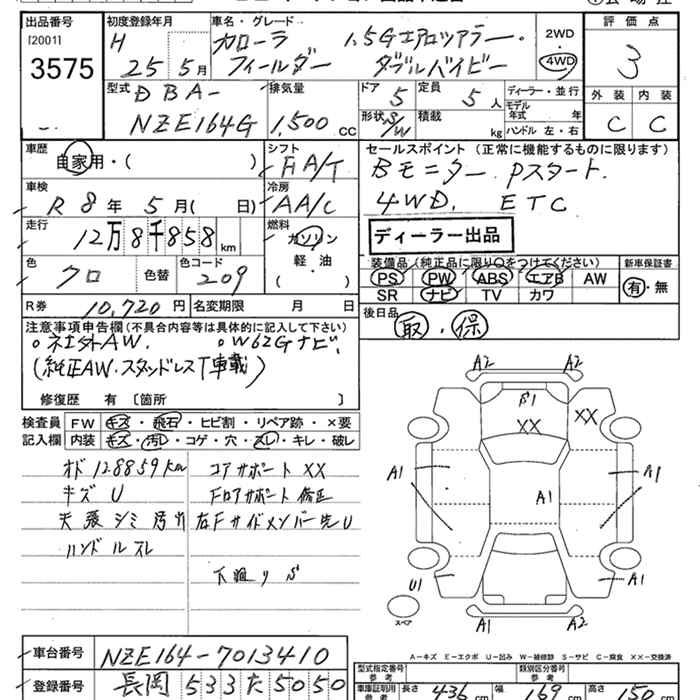 出品番号 初度登録年月 車名・グレード 2WD・ 評価点
[2001] H カローラ 1.5Gエアロツアラー・ 4WD 3
3575 25 5月 フィールダー ダブルバイビー
型式 DBA- 排気量 ドア 5 定員 5人 ディーラー・並行 外装 内装
NZE164G 1,500 CC 形状 S/W 積載 kg モデル年式 年 ハンドル 左・右 C C
車歴 自家用・( ) シフト FA/T セールスポイント (正常に機能するものに限ります)
Bモニター. Pスタート.
車検 R 8年 5月( 日) 冷房 AA/C 4WD. ETC
走行 12万8千858km 燃料 ガソリン 軽・油 ( ) ディーラー出品
色 クロ 色替 色コード 209 装備品(純正品に限り○をつけてください) 新車保証書
PS PW ABS エアB AW 有・無
SR ナビ TV カワ
R券 10,720円 名変期限 月 日 後日品 取・保
注意事項申告欄(不具合内容等は具体的に記入して下さい)
○社外AW. ○W62Gナビ.
(純正AW.スタッドレスT車載)
修復歴 有 〔箇所 〕
検査員 FW キズ・飛石・ヒビ割・リペア跡・×要
記入欄 内装 キズ・汚レ・コゲ・穴・スレ・キレ・破レ
オド 128859km コアサポート XX
キズ U Fロアサポート 修正
天張シミ汚れ 左Fサイドメンバー先U
ハンドルスレ
下廻り S
A2 A2
XX XX
A1 A1 A1
U1 A1
スペア A1 A2
A-キズ E-エクボ U-凹み W-補修跡 S-サビ C-腐食 XX-交換済
車台番号 NZE164-7013410 型式指定番号 参考 類別区分番号 参考
登録番号 長岡 533た5050 車庫証明用 参考 長さ 436cm 幅 169cm 高さ 150cm